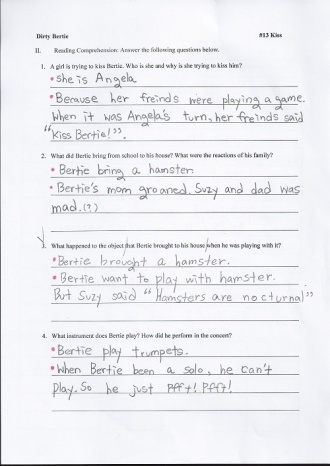 Dirty Bertie #13 Kiss
II. Reading Comprehension: Answer the following questions below.
1. A girl is trying to kiss Bertie. Who is she and why is she trying to kiss him?
• she is Angela
• Because her freinds were playing a game.
When it was Angela's turn, her freinds said
"Kiss Bertie!".
2. What did Bertie bring from school to his house? What were the reactions of his family?
• Bertie bring a hamster
• Bertie's mom groaned. Suzy and dad was
mad.(?)
3. What happened to the object that Bertie brought to his house when he was playing with it?
• Bertie brought a hamster.
• Bertie want to play with hamster.
But Suzy said "Hamsters are nocturnal"
4. What instrument does Bertie play? How did he perform in the concert?
• Bertie play trumpets.
• When Bertie been a solo, he can't
play. So he just Pfft! Pfft!